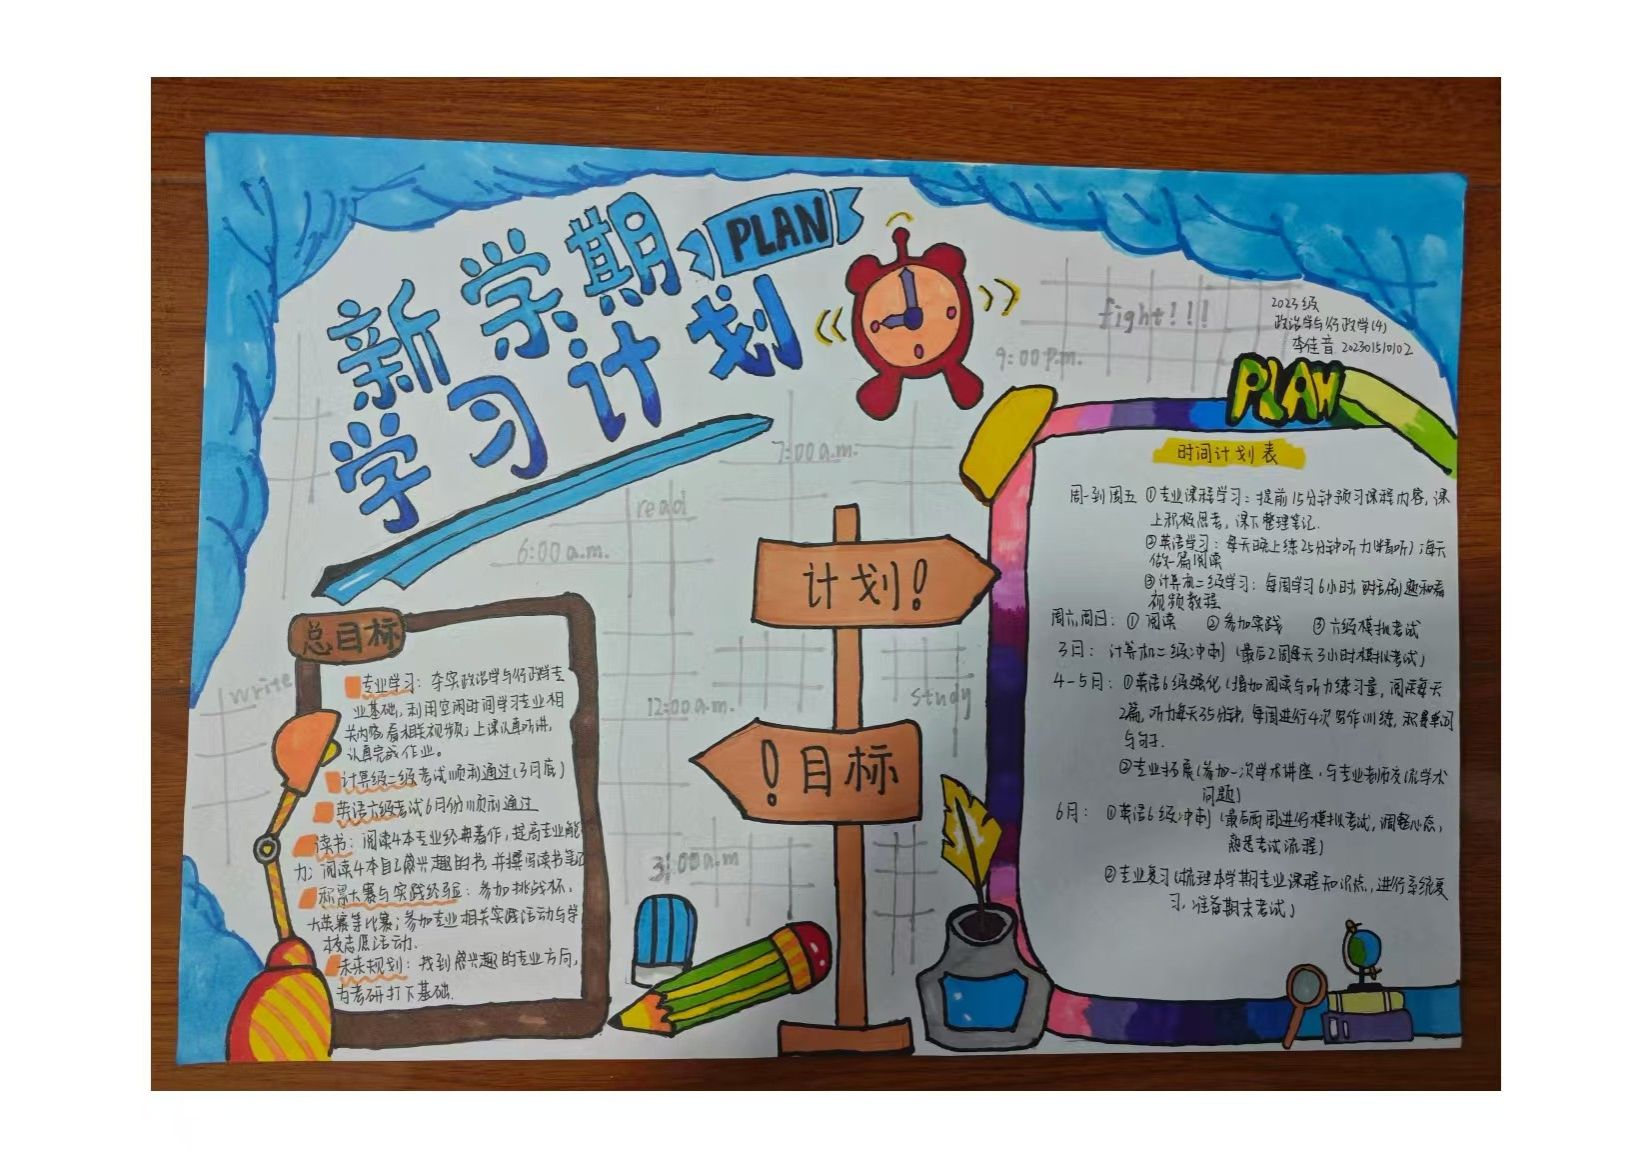 新学期
PLAN
学习计划
fight!!!
9:00 p.m.
2023级
政治学与行政学(4)
李佳音 202301510102
7:00 a.m.
read
6:00 a.m.
write
12:00 a.m.
study
3:00 a.m
计划!
!目标
总目标
专业学习：夯实政治学与行政学专
业基础，利用空闲时间学习专业相
关内容，看相关视频；上课认真听讲，
认真完成作业。
计算级二级考试顺利通过(3月底)
英语六级考试6月份顺利通过
读书：阅读4本专业经典著作，提高专业能
力；阅读4本自己感兴趣的书，并撰写读书笔记
积累大赛与实践经验：参加挑战杯，
大英赛等比赛；参加专业相关实践活动与学
校志愿活动.
未来规划：找到感兴趣的专业方向，
为考研打下基础.
PLAN
时间计划表
周一到周五 ①专业课程学习：提前15分钟预习课程内容，课
上积极思考，课下整理笔记.
②英语学习：每天晚上练25分钟听力(精听)；每天
做一篇阅读
③计算机二级学习：每周学习6小时，刷题和看
视频教程
周六周日：① 阅读 ② 参加实践 ③ 六级模拟考试
3月：计算机二级冲刺（最后2周每天3小时模拟考试）
4-5月：①英语6级强化（增加阅读与听力练习量，阅读每天
2篇，听力每天35分钟，每周进行4次写作训练，积累单词
与句子.
②专业拓展（参加一次学术讲座，与专业老师交流学术
问题）
6月：①英语6级冲刺（最后两周进行模拟考试，调整心态，
熟悉考试流程）
②专业复习（梳理本学期专业课程知识点，进行系统复
习，准备期末考试）